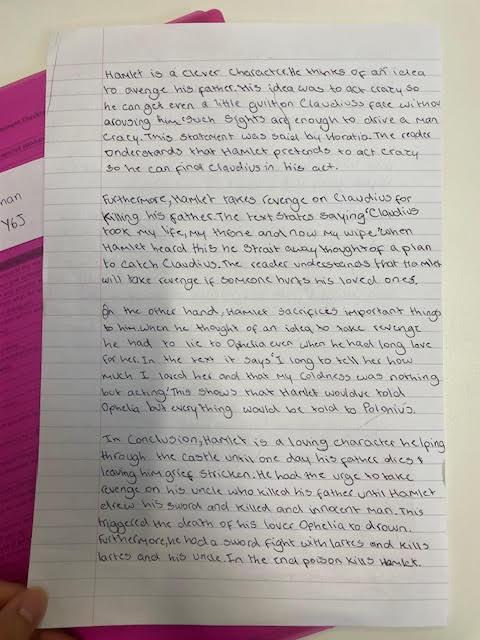 Hamlet is a clever character.He thinks of an idea
to avenge his father.His idea was to act crazy so
he can get even a little guilt on Claudius's face without
arousing him.'Such sights are enough to drive a man
cracy.'This statement was said by Horatio.The reader
understands that Hamlet pretends to act crazy
so he can find Claudius in his act.
Furthermore,Hamlet takes revenge on Claudius for
killing his father.The text states saying'Claudius
took my life,my throne and now my wife.'When
Hamlet heard this he strait away thought of a plan
to catch Claudius.The reader understands that Hamlet
will take revenge if someone hurts his loved ones.
On the other hand,Hamlet sacrifices important things
to him.When he thought of an idea to take revenge
he had to lie to Ophelia even when he had long love
for her.In the text it says'I long to tell her how
much I loved her and that my coldness was nothing
but acting.'This shows that Hamlet would've told
Ophelia but everything would be told to Polonius.
In Conclusion,Hamlet is a loving character helping
through the castle until one day his father dies &
leaving him grief stricken.He had the urge to take
revenge on his uncle who killed his father until Hamlet
drew his sword and killed and innocent man.This
triggered the death of his lover Ophelia to drown.
Furthermore,he had a sword fight with lartes and kills
lartes and his uncle.In the end poison kills Hamlet.
nan
Y6J